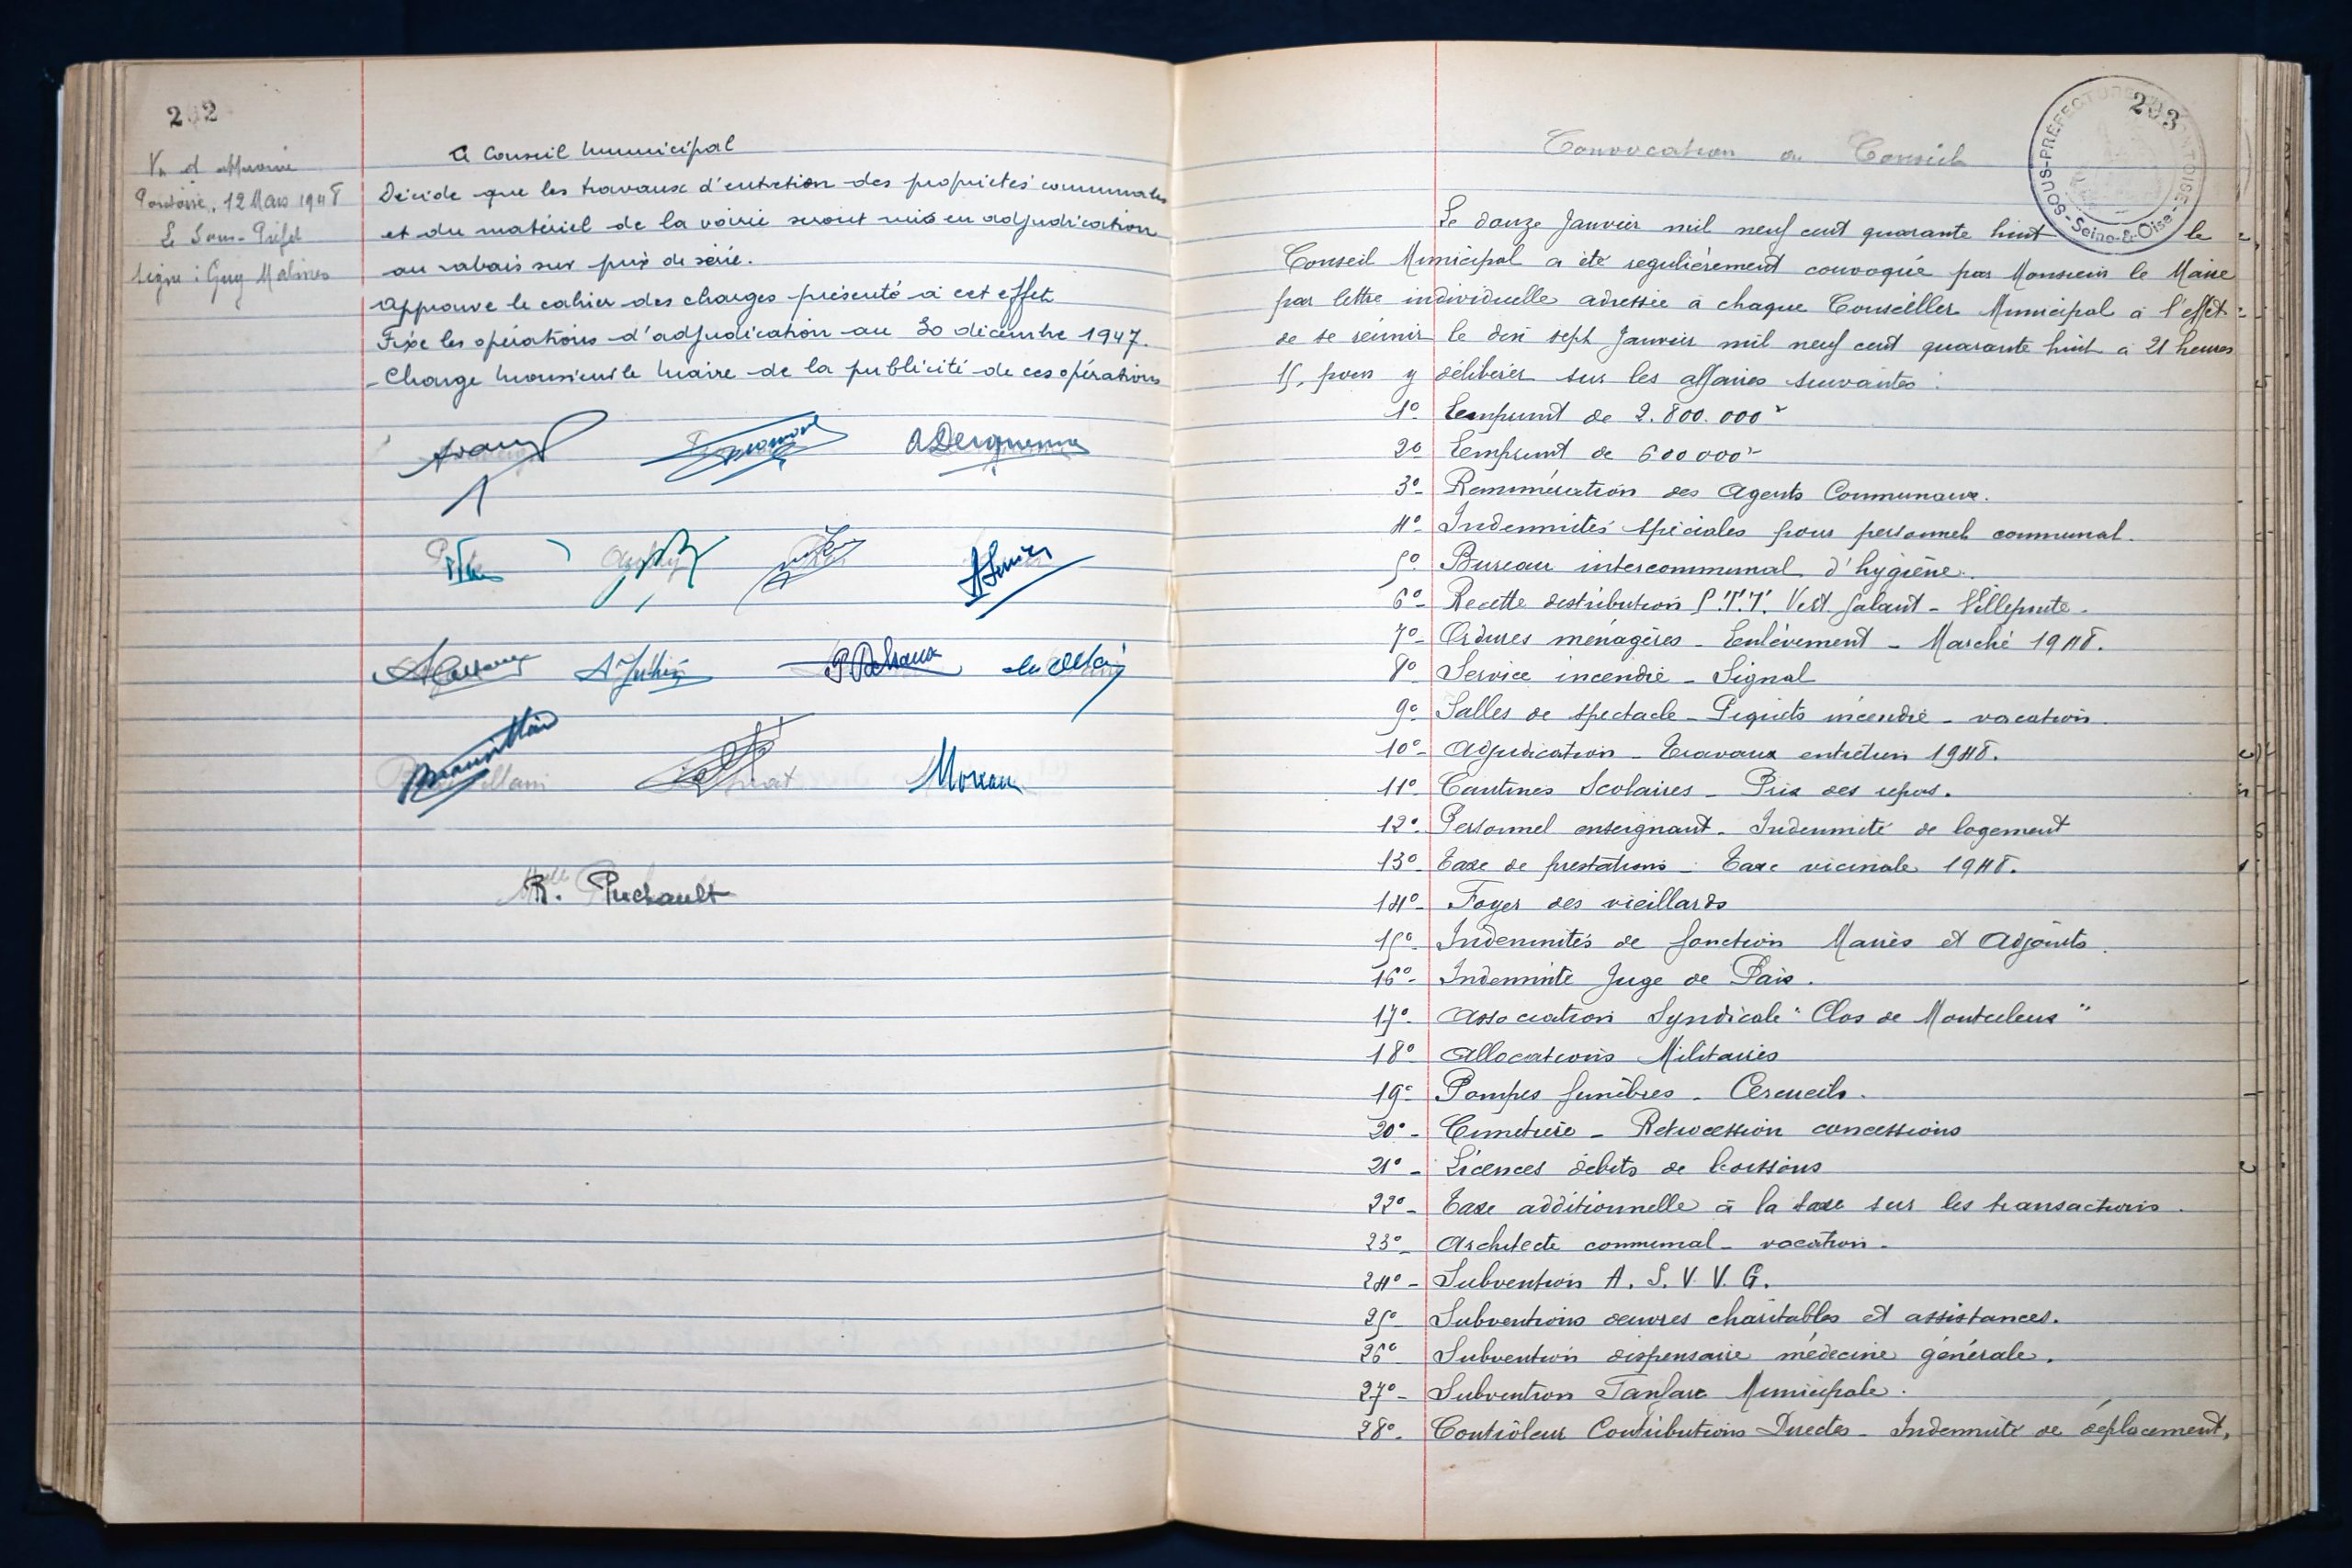 202
Vu et approuvé
Pontoise, 12 Mars 1948
Le Sous-Préfet
Signé : Guy
Le Conseil Municipal
Décide que les travaux d'entretien des propriétés communales
et du matériel de la voirie seront mis en adjudication
au rabais sur prix de série.
Approuve le cahier des charges présenté à cet effet
Fixe les opérations d'adjudication au 30 décembre 1947.
- Charge Monsieur le Maire de la publicité de ces opérations
Moreau
R. Puchault
203
SOUS-PRÉFECTURE PONTOISE
- Seine-&-Oise -
Convocation du Conseil
Le douze Janvier mil neuf cent quarante huit le
Conseil Municipal a été regulièrement convoqué par Monsieur le Maire
par lettre individuelle adressée à chaque Conseiller Municipal à l'effet
de se réunir le dix sept Janvier mil neuf cent quarante huit à 21 heures
15, pour y délibérer sur les affaires suivantes :
1° Emprunt de 2.800.000
2° Emprunt de 600 000
3°- Rémunération des Agents Communaux.
4°- Indemnités spéciales pour personnel communal.
5°- Bureau intercommunal d'hygiène.
6°- Recette distribution P.T.T. Vert Galant - Villepinte.
7°- Ordures ménagères - Enlèvement - Marché 1948.
8° Service incendie - Signal
9°- Salles de spectacle - Piquets incendie - vacation.
10°- Adjudication - Travaux entretien 1948.
11°- Cantines Scolaires - Prix des repas.
12°- Personnel enseignant - Indemnité de logement
13° Taxe de prestations - Taxe vicinale 1948.
14°- Foyer des vieillards
15°- Indemnités de fonction Maires et Adjoints.
16°- Indemnité Juge de Paix.
17°- Association Syndicale "Clos de Montceleux"
18° Allocations Militaires
19°- Pompes funèbres - Cercueils.
20°- Cimetière - Rétrocession concessions
21°- Licences débits de boissons
22°- Taxe additionnelle à la taxe sur les transactions.
23°- Architecte communal - vacation -
24°- Subvention A. S. V. V. G.
25°- Subventions oeuvres charitables et assistances.
26° Subvention dispensaire médecine générale.
27°- Subvention Fanfare Municipale.
28°- Contrôleur Contributions Directes - Indemnité de déplacement,